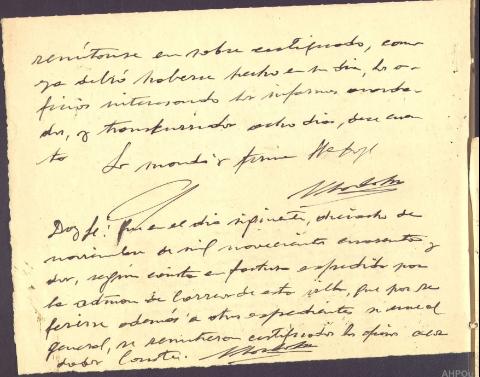 remítanse en sobre certificado, como
ya debió haberse hecho en su día, los o-
ficios interesando los informes acorda-
dos, y transcurridos ocho días, dese cuen-
ta Lo mandó y firma
Doy fe: Que en el día siguiente, dieciocho de
noviembre de mil novecientos cuarenta y
dos, según consta en factura expedida por
la admon de Correos de esta villa, que por re-
ferirse además a otros expedientes se une al
general, se remitieron certificados los oficios acor
dados Consta.
AHPOu